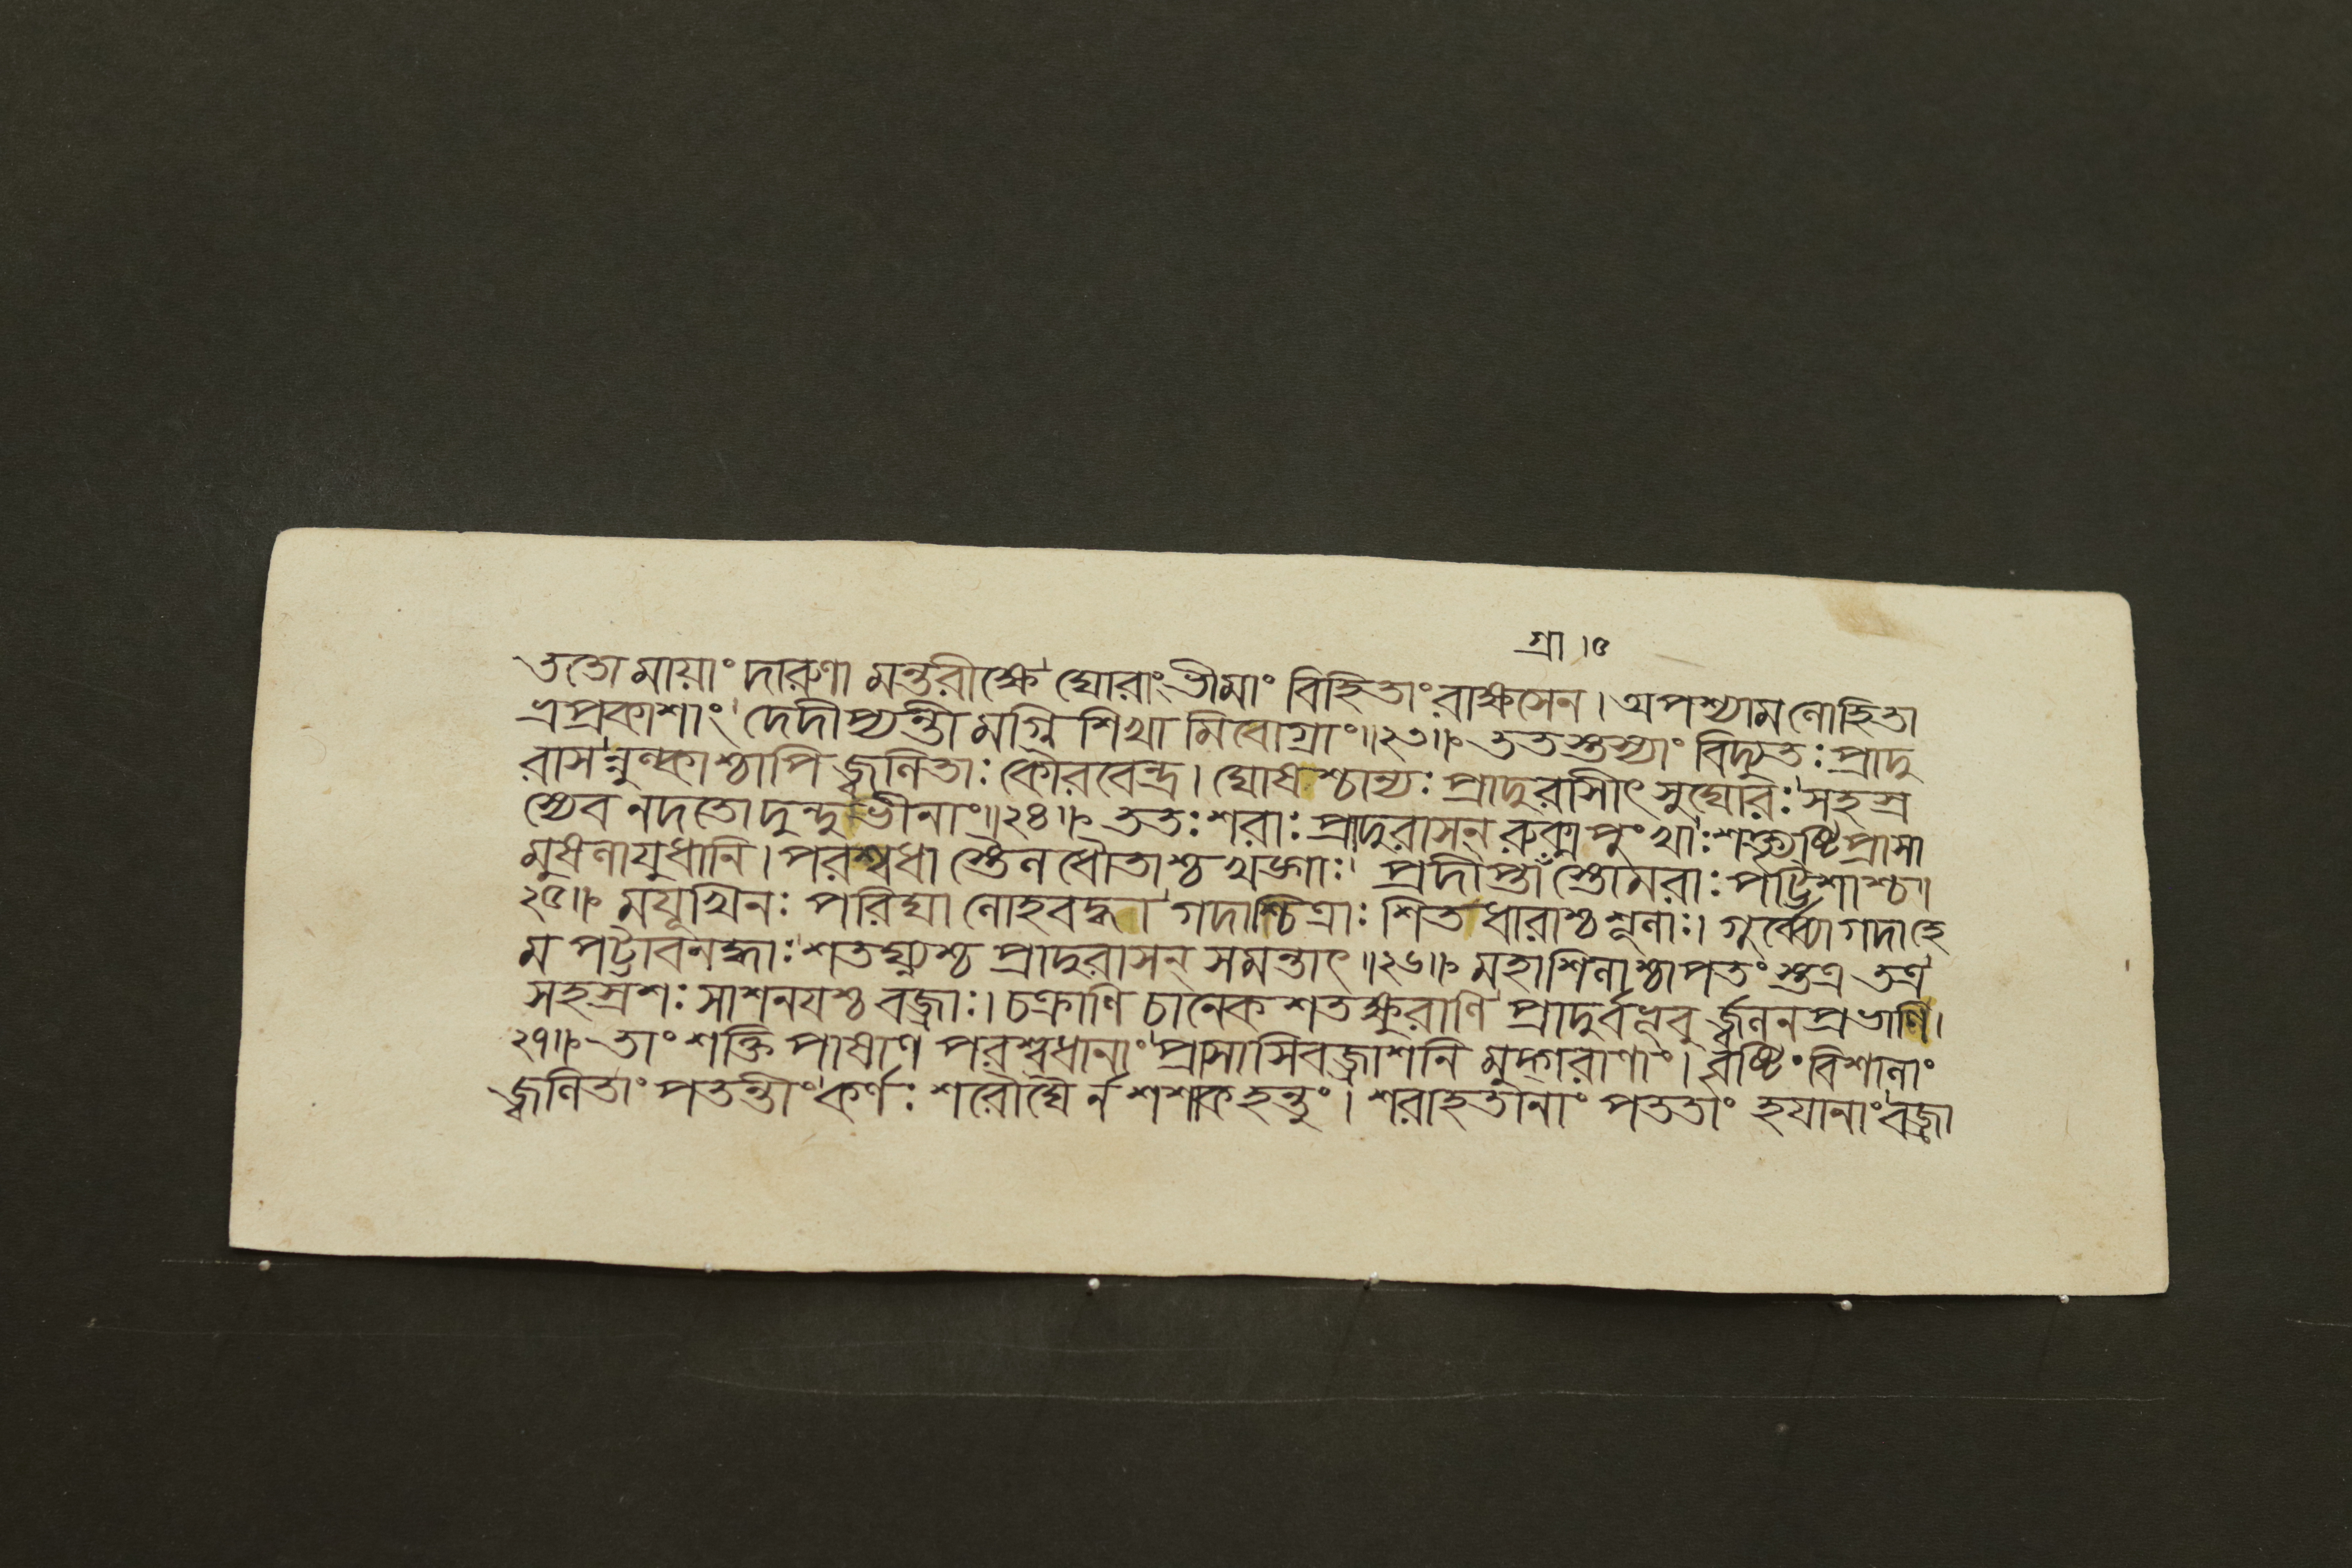 গ্রা।৫
ততো মায়াং দারুণা মন্তরীক্ষে ঘোরাং ভীমাং বিহিতাং রাক্ষসেন। অপশ্যাম লোহিতা
ভ্রপ্রকাশাং দেদীপ্যন্তী মগ্নি শিখা মিবোগ্রাং॥২৩॥ ততস্তস্যাং বিদ্যুতঃ প্রাদু
রাসন্নুল্কাশ্চাপি জ্বলিতাঃ কৌরবেন্দ্র। ঘোষশ্চান্যঃ প্রাদুরাসীৎ সুঘোরঃ সহস্র
স্যেব নদতো দুন্দুভীনাং॥২৪॥ ততঃ শরাঃ প্রাদুরাসন্ রুক্ম পুংখাঃ শক্ত্যৃষ্টি প্রাসা
মুষলাযুধানি। পরশ্বধা স্তৈল ধৌতাশ্চ খড়্গাঃ প্রদীপ্তাঁ স্তোমরাঃ পট্টিশাশ্চ॥
২৫॥ ময়ূখিনঃ পরিঘা লোহবদ্ধা গদাশ্চিত্রাঃ শিতধারাশ্চ শূলাঃ। গুর্ব্ব্যো গদা হে
ম পট্টাবনদ্ধাঃ শতঘ্ন্যশ্চ প্রাদুরাসন্ সমন্তাৎ॥২৬॥ মহাশিলাশ্চাপতং স্তত্র তত্র
সহস্রশঃ সাশনযশ্চ বজ্রাঃ। চক্রাণি চানেক শতক্ষুরাণি প্রাদুর্বভূবু র্জ্বলন প্রভাণি।
২৭॥ তাং শক্তি পাষাণ পরশ্বধানাং প্রাসাসিবজ্রাশনি মুদ্গরাণাং। বৃষ্টিং বিশালাং
জ্বলিতাং পতন্তীং কর্ণঃ শরৌঘৈ র্ন শশাক হন্তুং। শরাহতানাং পততাং হযানাং বজ্রা